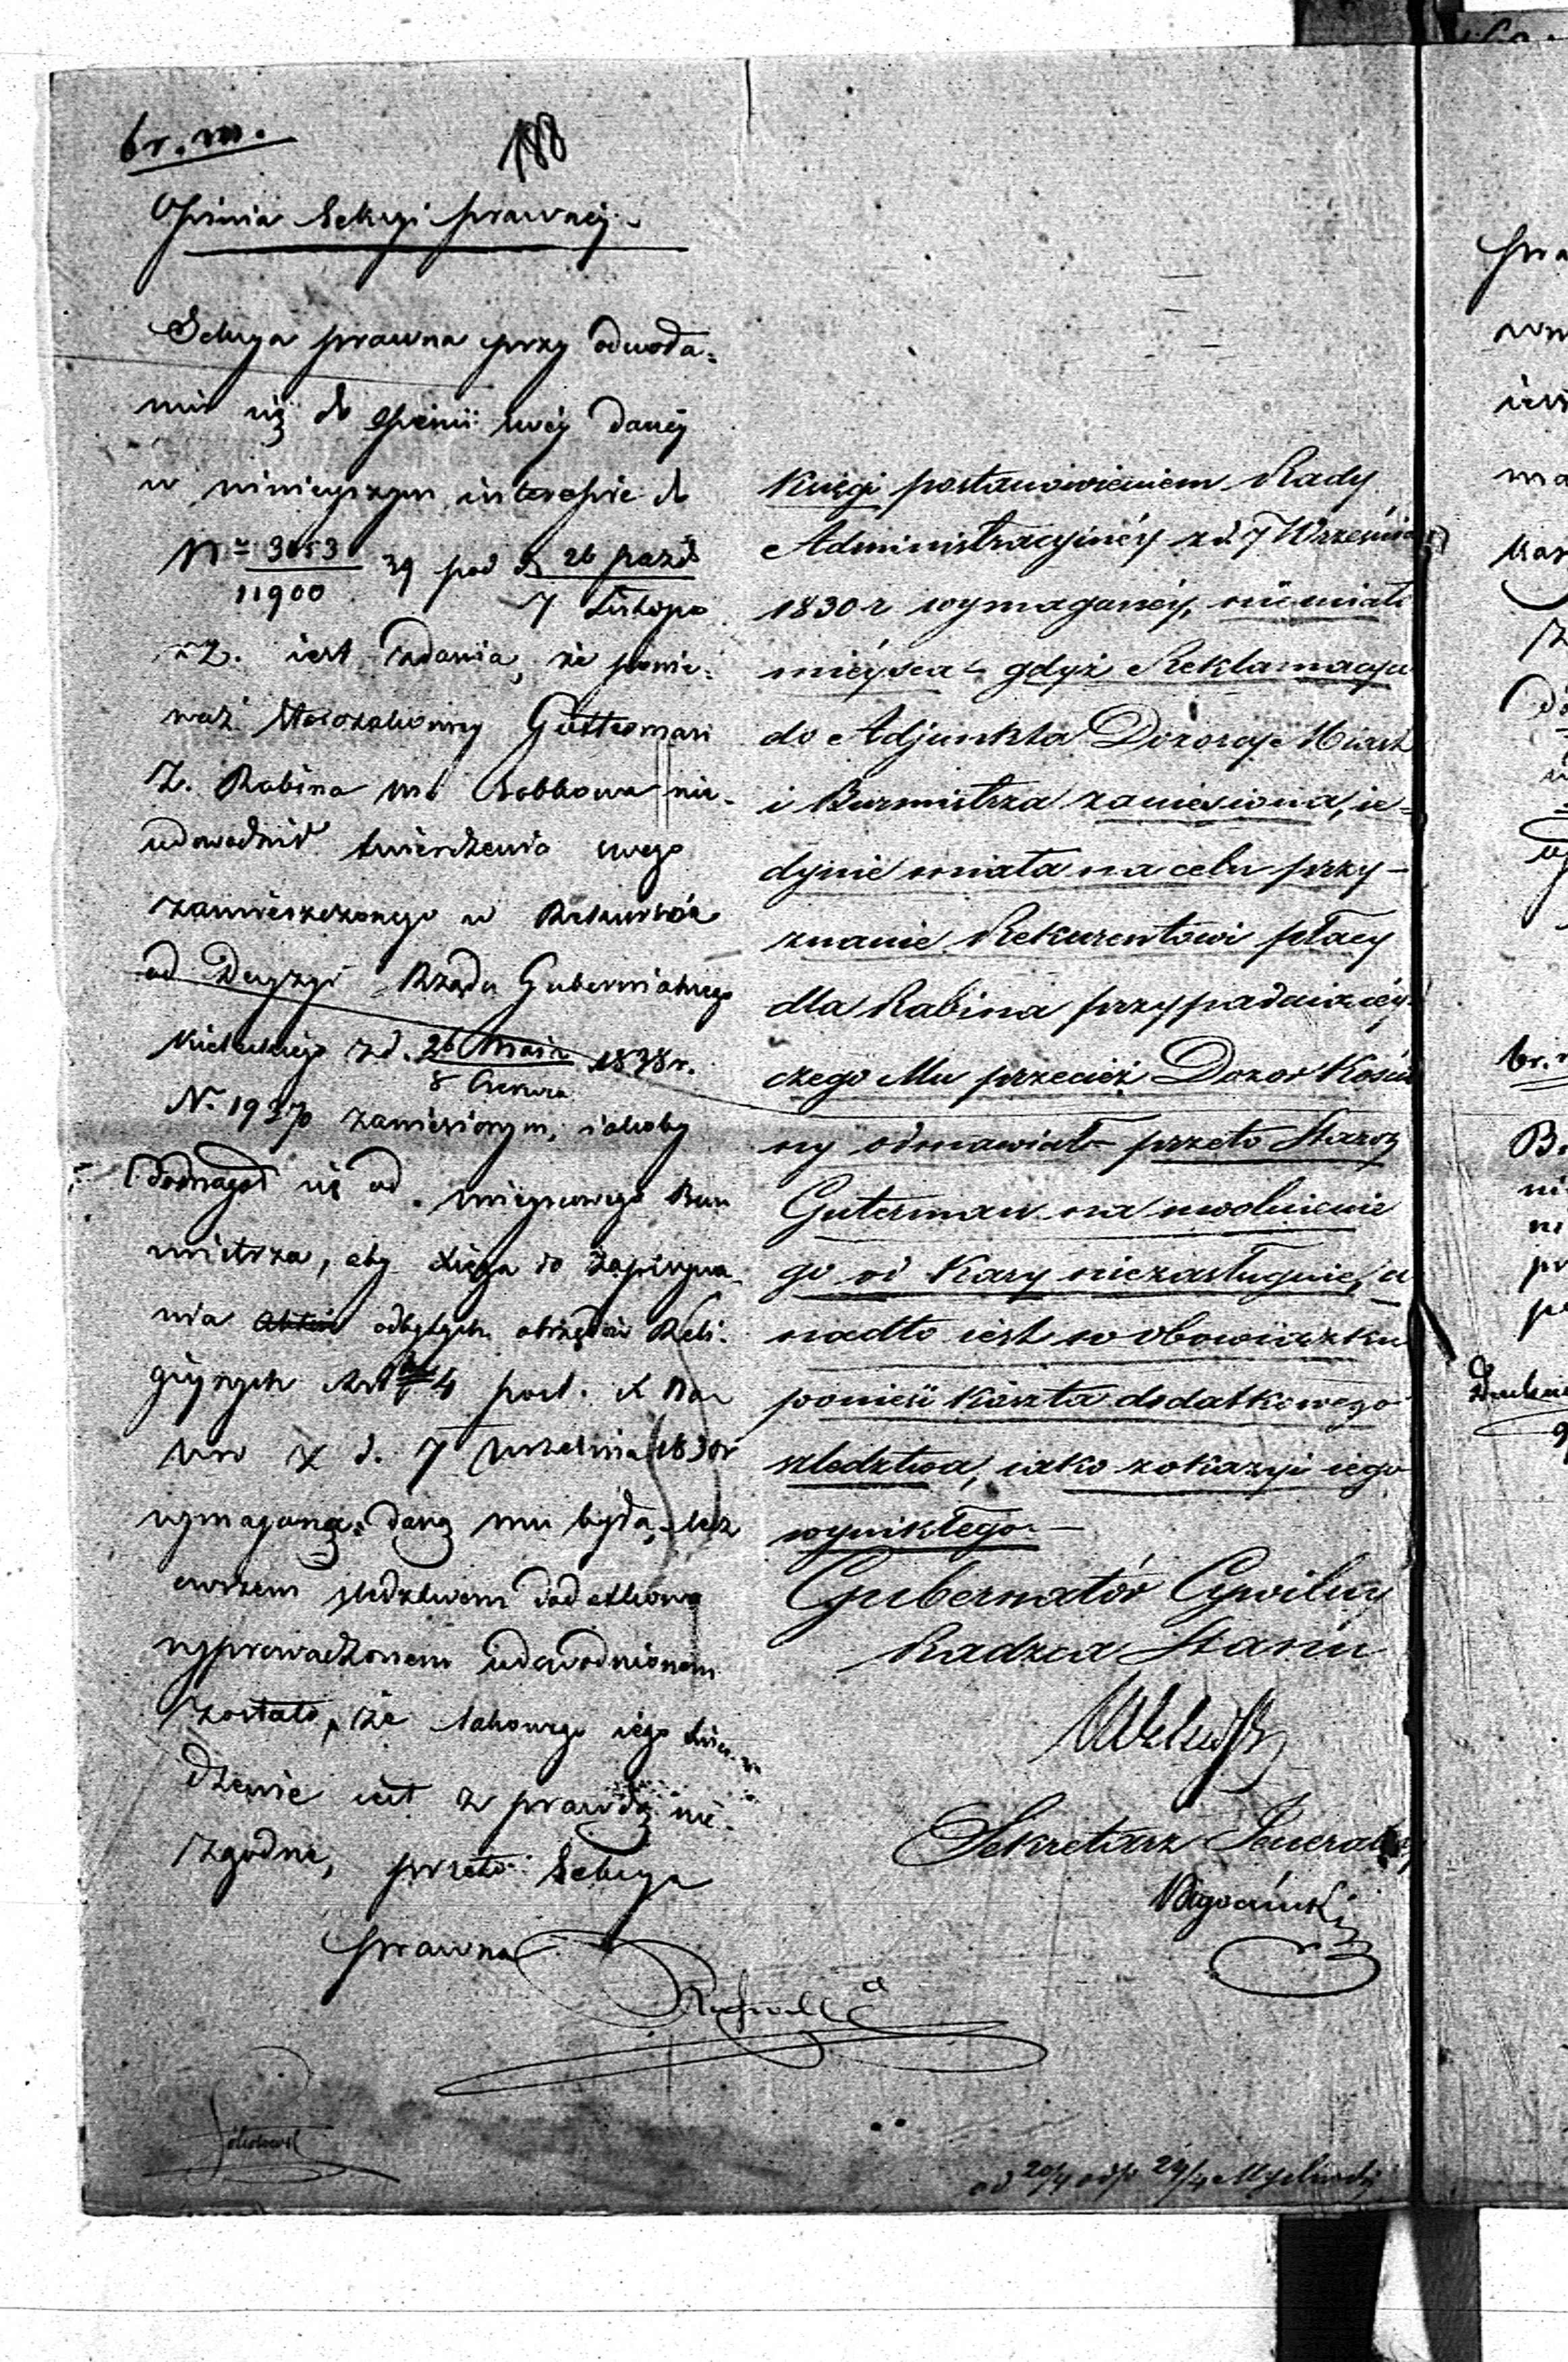 br. m.
188
Opinia Sekcyi prawnéj.
Sekcya prawna przy odwoła=
niu się do Opinii swéj danéj
w ninieyszym interesie do
Nr 3053/11900 39 pod d. 26 paźd/7 Listopa
r z. iest zdania, że ponie=
waż Starozakonny Guterman
Z. Rabina w Sobkowa nie=
udowodnił twierdzenia swego
zamieszczonego w Rekursie
od Decyzyi Rządu Gubernialnego
Kieleckiego z d. 26 Maja/8 Czerwca 1838 r.
N. 19270 zaniesionym, iakoby
domagał się od mieyscowego Bur
mistrza, aby xięga do zapisywa=
nia odbytych obrzędów Reli=
giynych Art 4 post. X
z d. 7 Września 1830 r
wymagana, daną mu była, lecz
owszem śledztwem dodatkowo
wyprowadzonem udowodnionem
zostało, że takowego iego twier=
dzenie iest z prawdą nie=
zgodne, przeto Sekcya
prawna
księgi postanowieniem Rady
Administracyinéy z d. 7 Września
1830 r wymaganéy, nie miał
mieysca gdyż Reklamacya
do Adjunkta Dozorcy Miast
i Burmistrza zaniesiona, ie=
dynie miała na celu przy=
znanie Rekurentowi płacy
dla Rabina przypadaiącéy
czego Mu przecież Dozor Kościel
ny odmawiał przeto Staroz
Guterman na uwolnienie
go od Kary niezasługuie, a
nadto iest w obowiązku
ponieść koszta dodatkowego
śledztwa, iako z okazyi iego
wynikłego
Gubernator Cywilny
Radzca Stanu
Sekretarz Jeneralny
od 20/4 odp 24/4